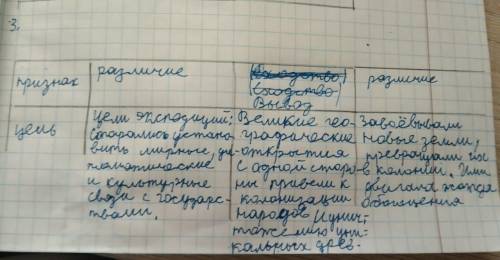 3.
признак различие Вывод различие
цель
Цели экспозиций:
старались устано-
вить мирные, ди-
пломатические
и культурные
связи с государс-
твами.
Великие гео-
графические
открытия
с одной сторо-
ны привели к
колонизации
народов и унич-
тожению уни-
кальных древ-
Завоёвывали
новые земли,
превращали их
в колонии. Ими
двигала жажда
обогащения